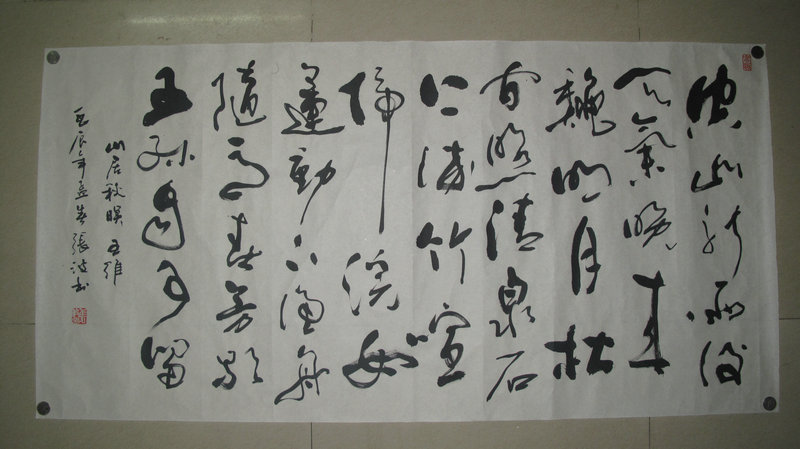 空山新雨後
天氣晚來
秋明月松
間照清泉石
上流竹喧
歸浣女
蓮動下漁舟
隨意春芳歇
王孫自可留
山居秋暝 王維
壬辰年孟春張波书